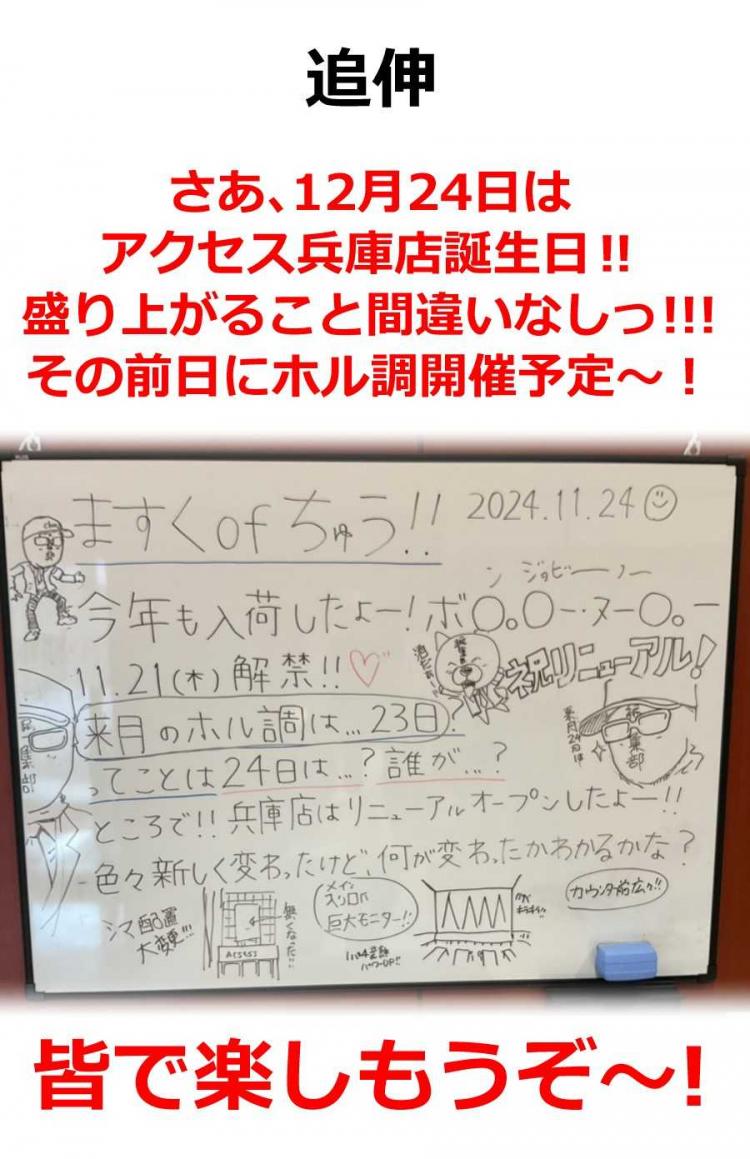 追伸
さあ、12月24日は
アクセス兵庫店誕生日!!
盛り上がること間違いなしっ!!!
その前日にホル調開催予定～！
ますくofちゅう!! 2024.11.24
ン ジョビーノー
今年も入荷したよー!ボ〇。〇ー・ヌー〇。ー
11.21(木)解禁!!♡
祝リニューアル!
来月のホル調は…23日?
ってことは24日は…?誰が…?
来月24日は
ところで!!兵庫店はリニューアルオープンしたよー!!
色々新しく変わったけど、何が変わったかわかるかな?
シマ配置
大変更!!!
ACCESS
無くなった!!
メイン
スリロパ
巨大モニター!!
カウンター前広々!!
皆で楽しもうぞ～!